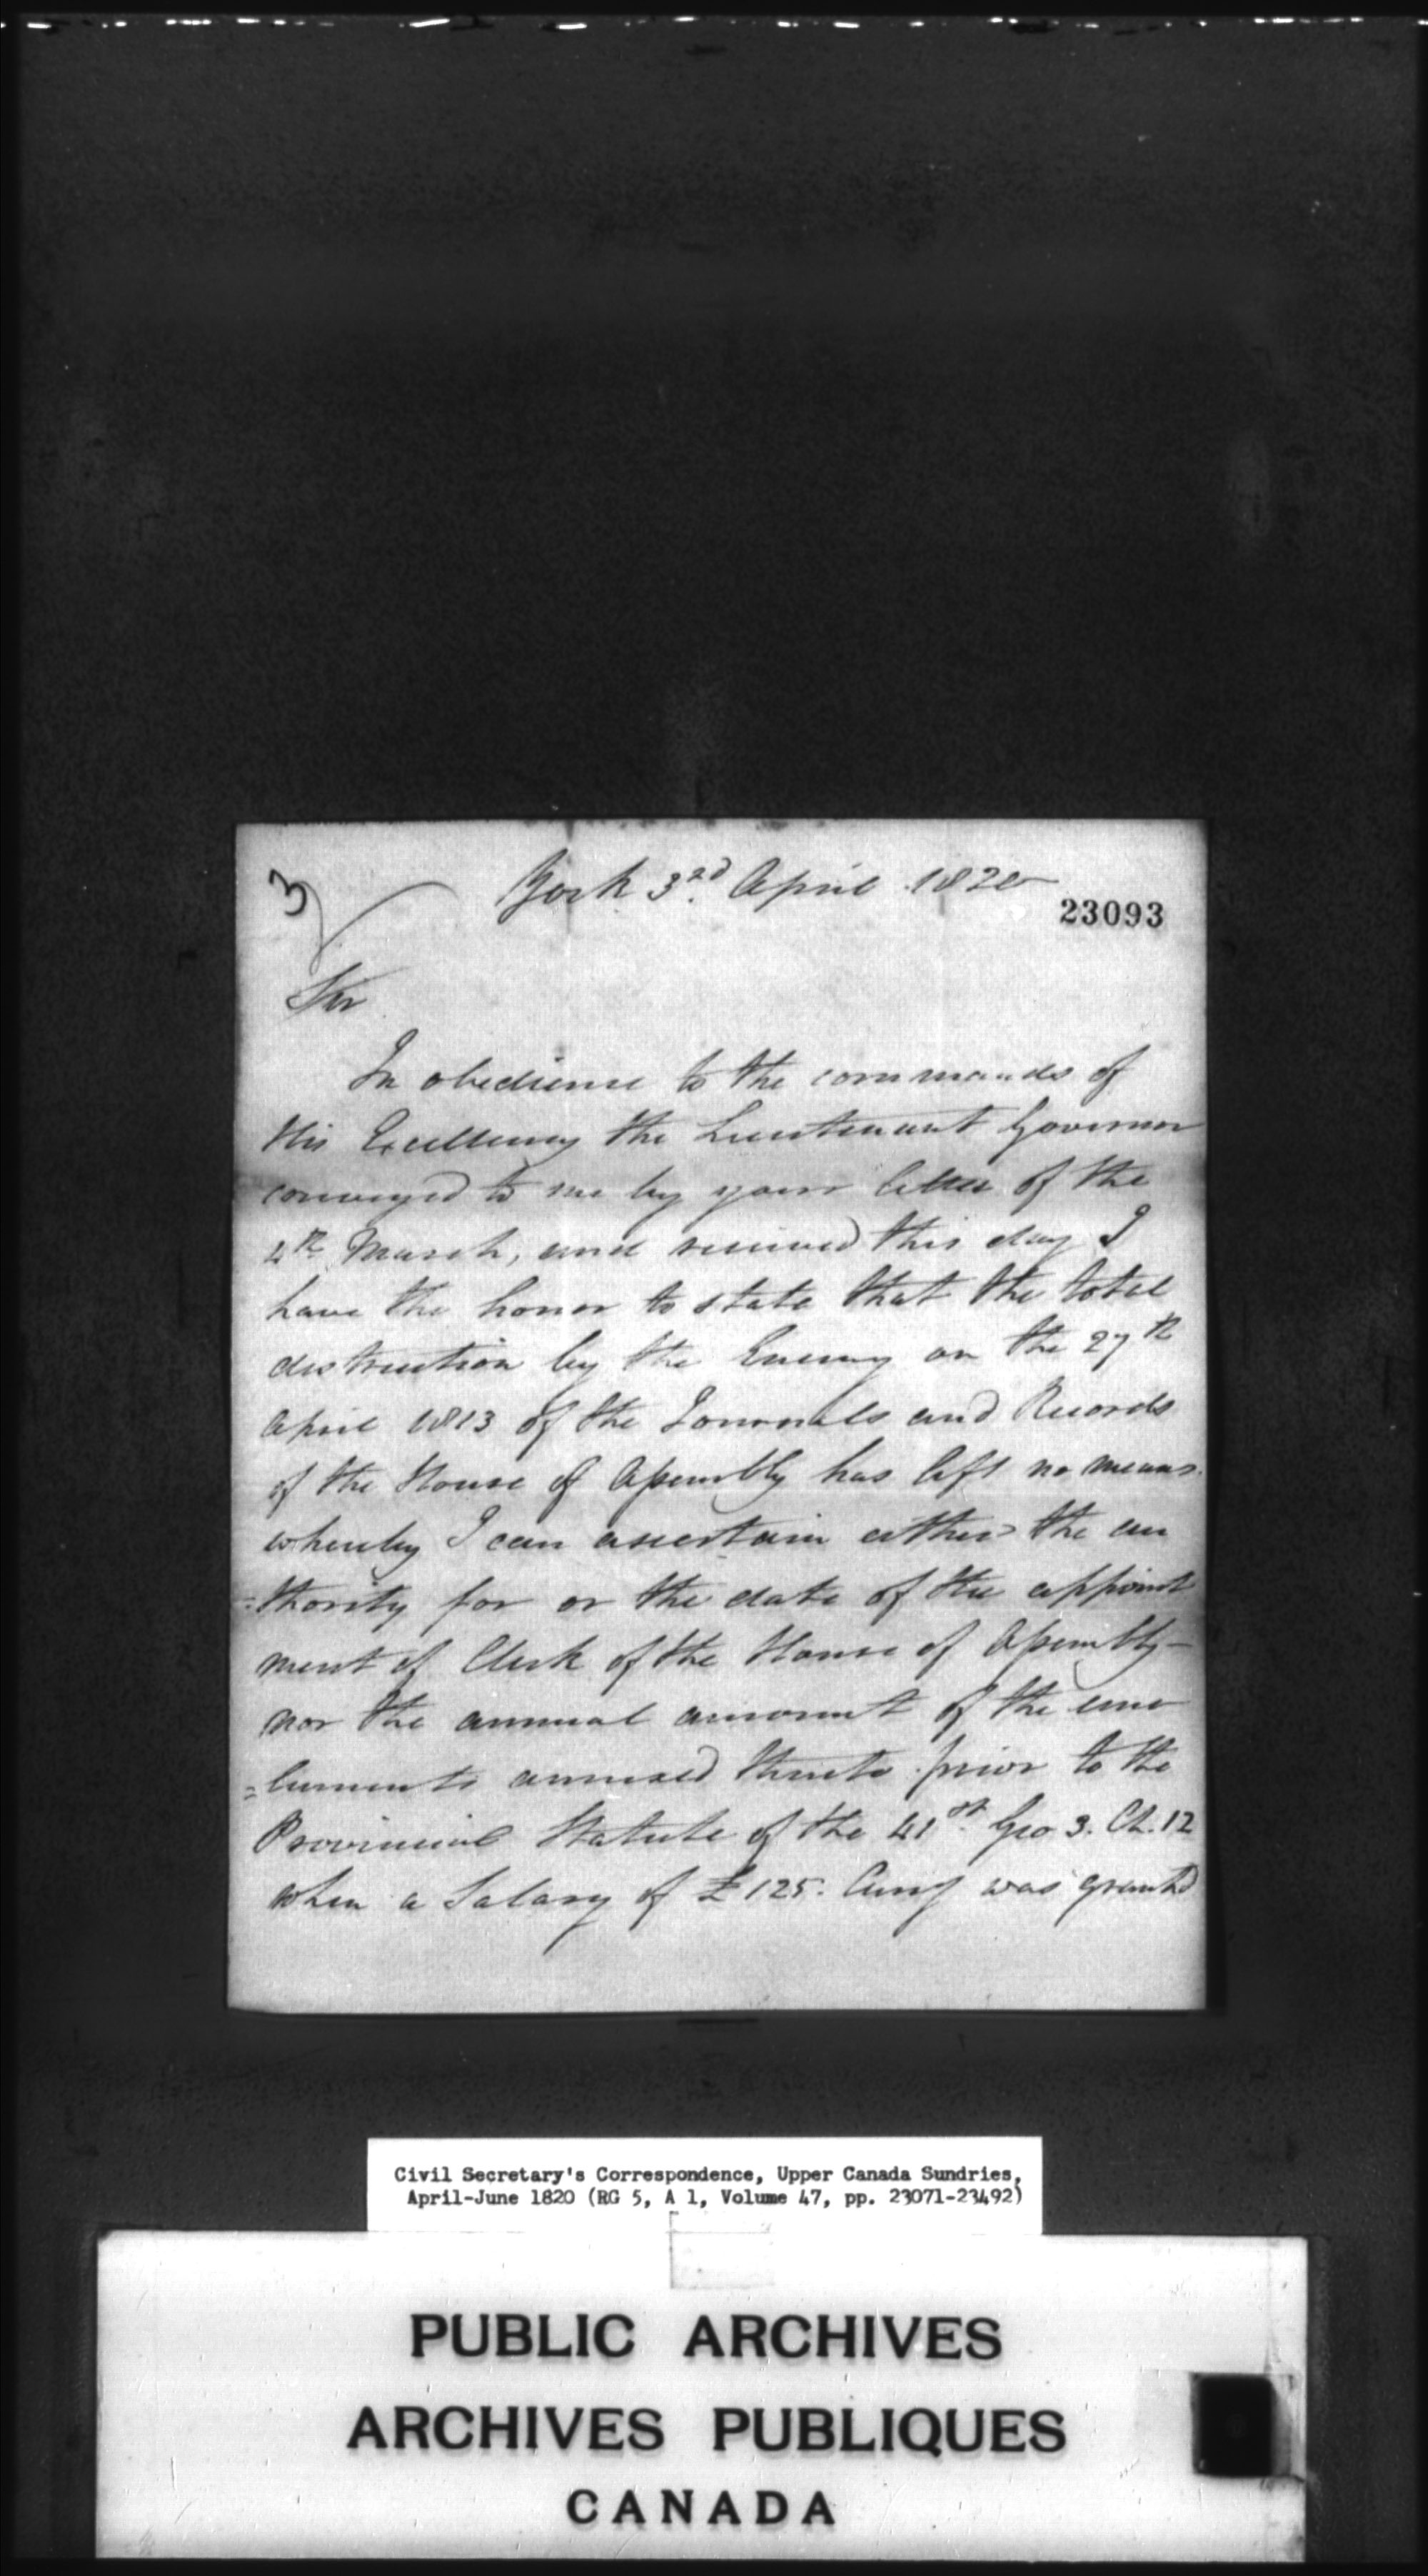 3
York 3rd April 1820
23093
Sir
In obedience to the commands of
His Excellency the Lieutenant Governor
conveyed to me by your letter of the
4th March, and received this day I
have the honor to state that the total
distruction by the Enemy on the 27th
April 1813 of the Journals and Records
of the House of Assembly has left no means
whereby I can ascertain either the au
=thority for or the date of the appoint
ment of Clerk of the House of Assembly-
nor the annual amount of the emo
=luments annexed thereto prior to the
Provincial Statute of the 41st. Geo 3. Ch. 12
when a Salary of £125. Curry was granted
Civil Secretary's Correspondence, Upper Canada Sundries,
April-June 1820 (RG 5, A 1, Volume 47, pp. 23071-23492)
PUBLIC ARCHIVES
ARCHIVES PUBLIQUES
CANADA